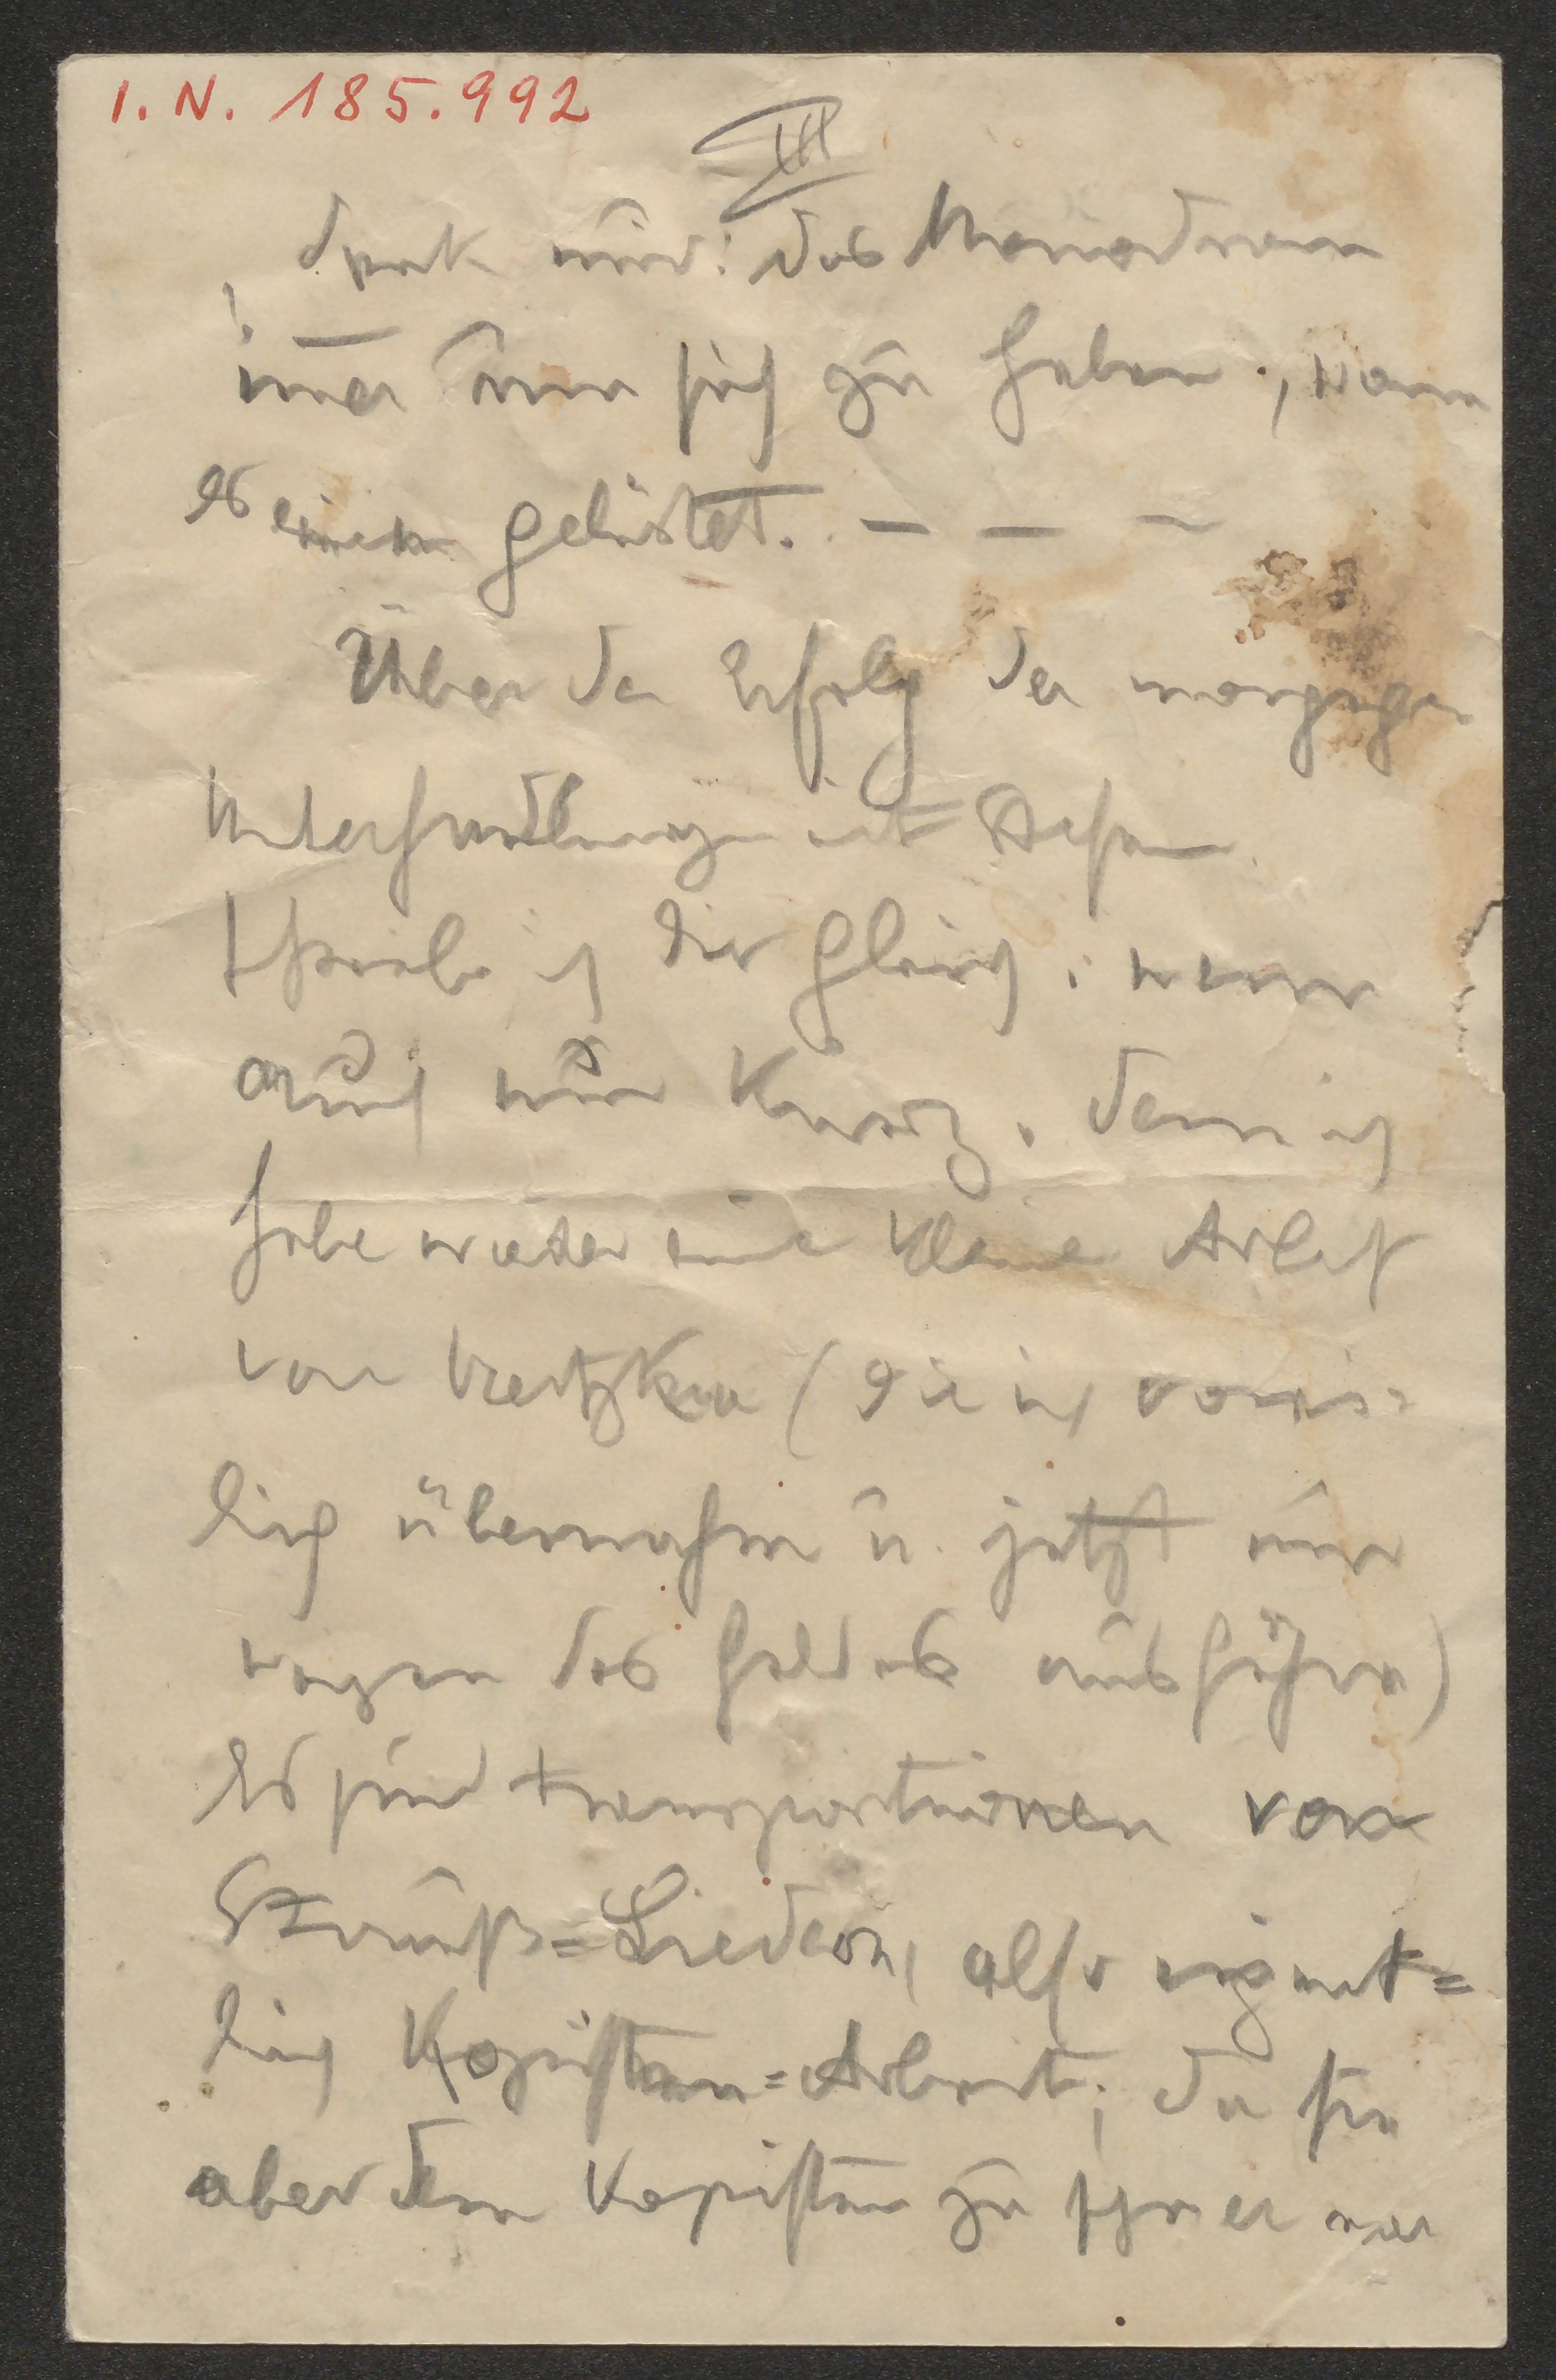 I. N. 185.992
III
denk nur: das Monodram
immer um sich zu haben, wenn
es einen gelüstet. — — —
Über den Erfolg der morgigen
Unterhandlungen mit
schreibe ich dir gleich, wenn
auch nur kurz, denn ich
habe wieder eine kleine Arbeit
von (die ich
übernahm u. jetzt nur
wegen des Geldes ausführe)
Es sind Transpositionen von
Strauß=Liedern, also eigent=
lich Kopisten=Arbeit; da sie
aber dem Kopisten zu schwer